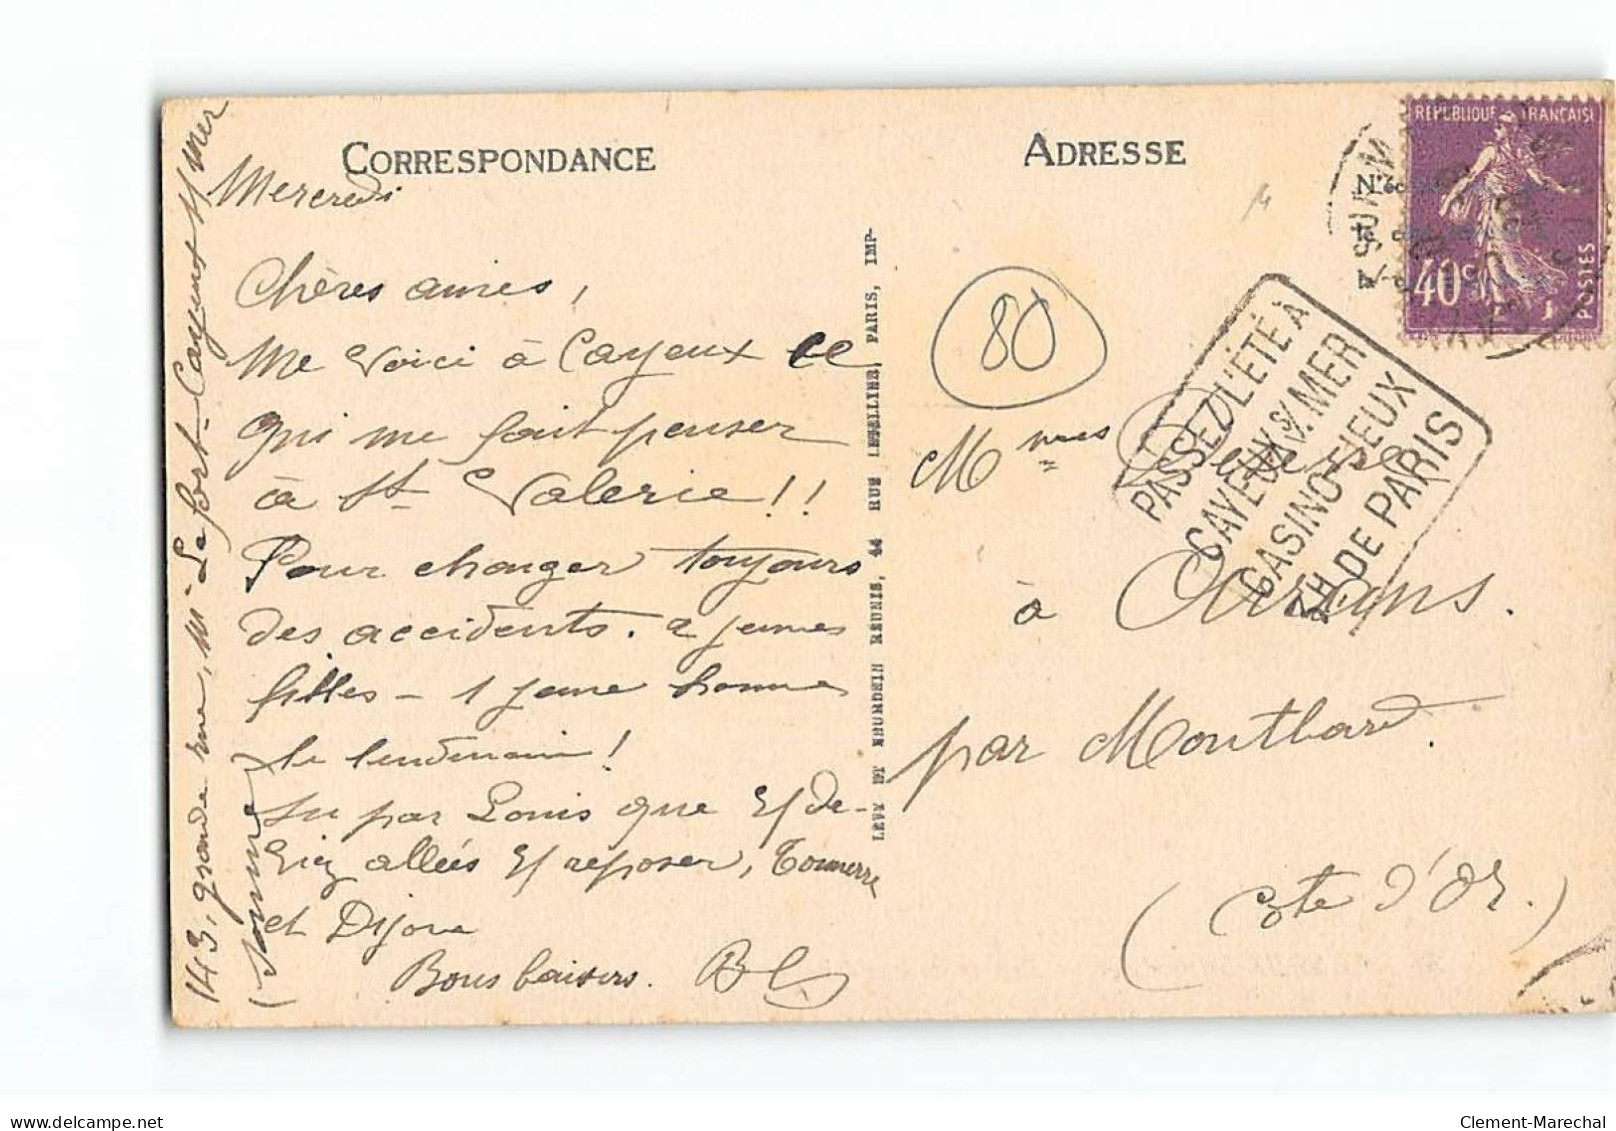 CORRESPONDANCE
Mercredi
Chères amies,
Me voici à Cayeux ce
qui me fait penser
à St Valerie !!
Pour changer toujours
des accidents. 2 jeunes
filles - 1 jeune homme
le lendemain !
Su par Louis que
allées reposer, Tonnerre
et Dijon
Bons baisers.
143, grande rue, Mn Lefort - Cayeux s/ Mer
(Somme)
LEVY ET NEURDEIN RÉUNIS, 44 RUE LETELLIER, PARIS, IMP.
ADRESSE
RÉPUBLIQUE FRANÇAISE
40c
POSTES
80
PASSEZ L'ÉTÉ À
CAYEUX S/. MER
CASINO-JEUX
3H. DE PARIS
Mmes
à Arrans.
par Montbard.
(Côte d'Or.)
www.delcampe.net
Clement-Marechal